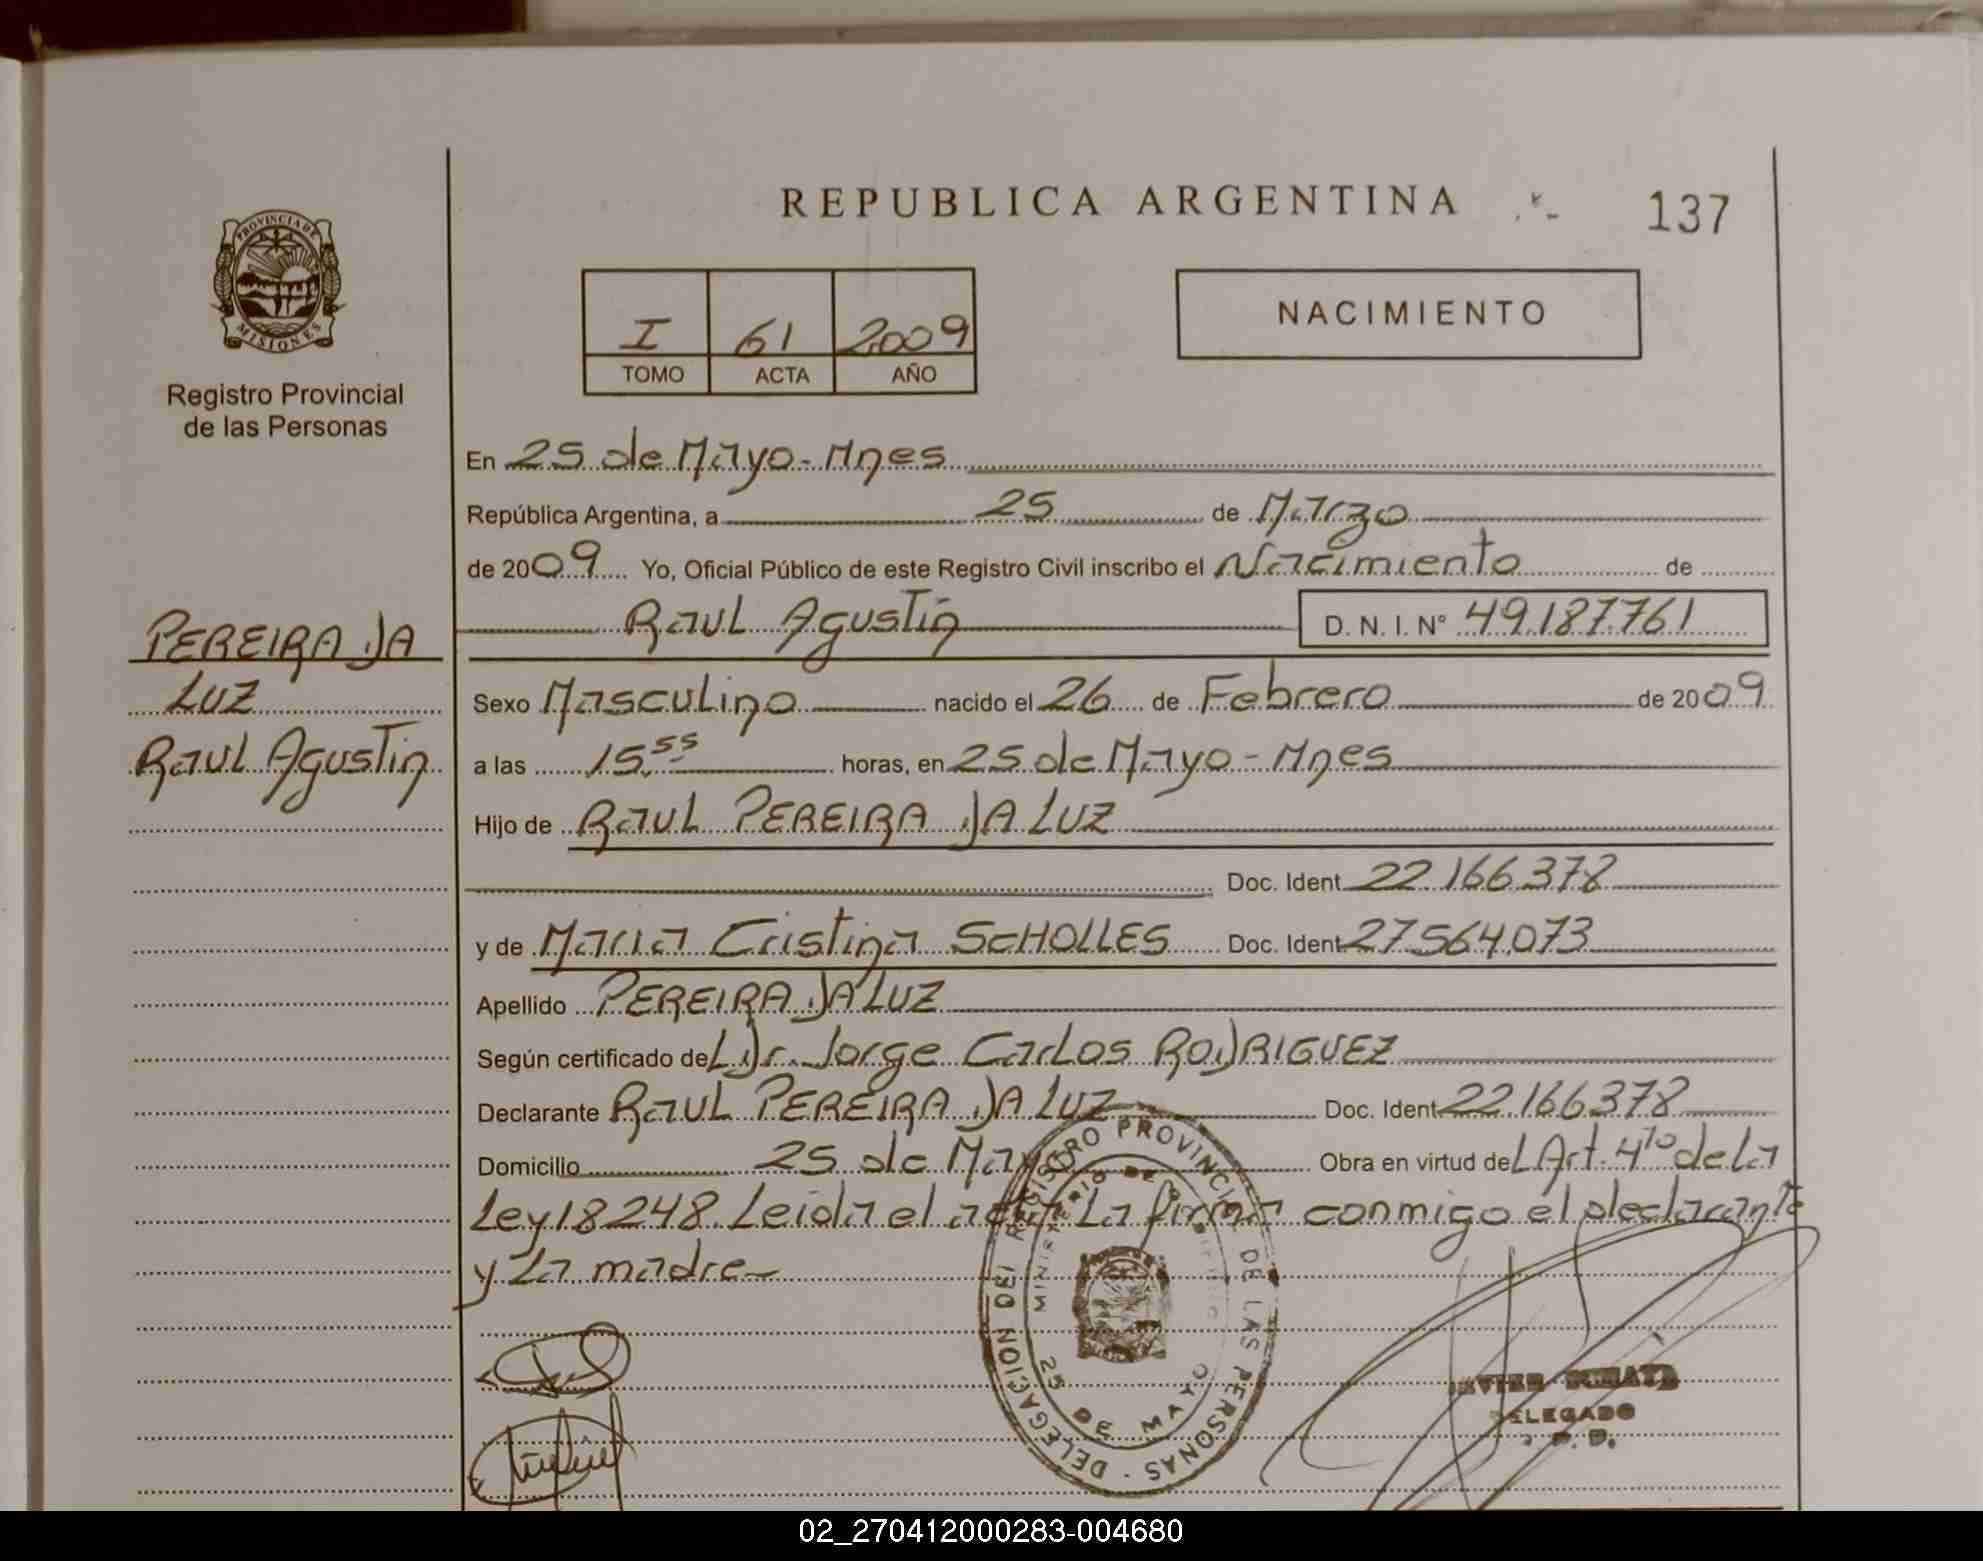 REPUBLICA ARGENTINA
137
PROVINCIA DE
MISIONES
Registro Provincial
de las Personas
I 61 2009
TOMO ACTA AÑO
NACIMIENTO
En 25 de Mayo - Mnes
República Argentina, a 25 de Marzo
de 2009 Yo, Oficial Público de este Registro Civil inscribo el Nacimiento de
Raul Agustin D. N. I. N° 49.187.761
PEREIRA DA
LUZ
Raul Agustin
Sexo Masculino nacido el 26 de Febrero de 2009
a las 15.55 horas, en 25 de Mayo - Mnes
Hijo de Raul PEREIRA DA LUZ
Doc. Ident 22.166.378
y de Maria Cristina SCHOLLES Doc. Ident 27.564.073
Apellido PEREIRA DA LUZ
Según certificado del Dr. Jorge Carlos RODRIGUEZ
Declarante Raul PEREIRA DA LUZ Doc. Ident 22.166.378
Domicilio 25 de Mayo Obra en virtud del Art. 4to de La
Ley 18248. Leida el acta La firma conmigo el declarante
y La madre
DELEGACION DEL REGISTRO PROVINCIAL DE LAS PERSONAS
MINISTERIO DE
25 DE MAYO
DELEGADO
02_270412000283-004680